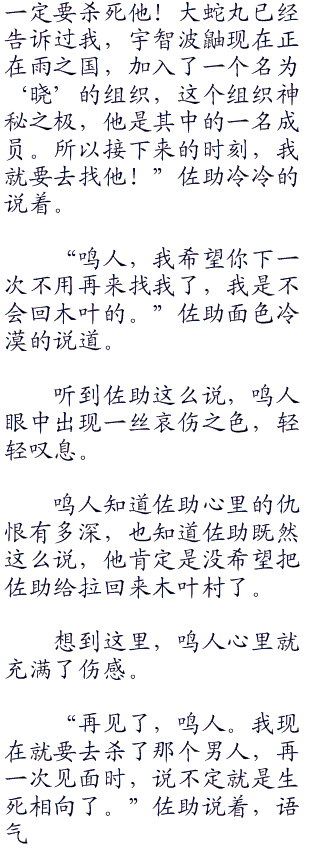 一定要杀死他！大蛇丸已经
告诉过我，宇智波鼬现在正
在雨之国，加入了一个名为
‘晓’的组织，这个组织神
秘之极，他是其中的一名成
员。所以接下来的时刻，我
就要去找他！”佐助冷冷的
说着。
“鸣人，我希望你下一
次不用再来找我了，我是不
会回木叶的。”佐助面色冷
漠的说道。
听到佐助这么说，鸣人
眼中出现一丝哀伤之色，轻
轻叹息。
鸣人知道佐助心里的仇
恨有多深，也知道佐助既然
这么说，他肯定是没希望把
佐助给拉回来木叶村了。
想到这里，鸣人心里就
充满了伤感。
“再见了，鸣人。我现
在就要去杀了那个男人，再
一次见面时，说不定就是生
死相向了。”佐助说着，语
气